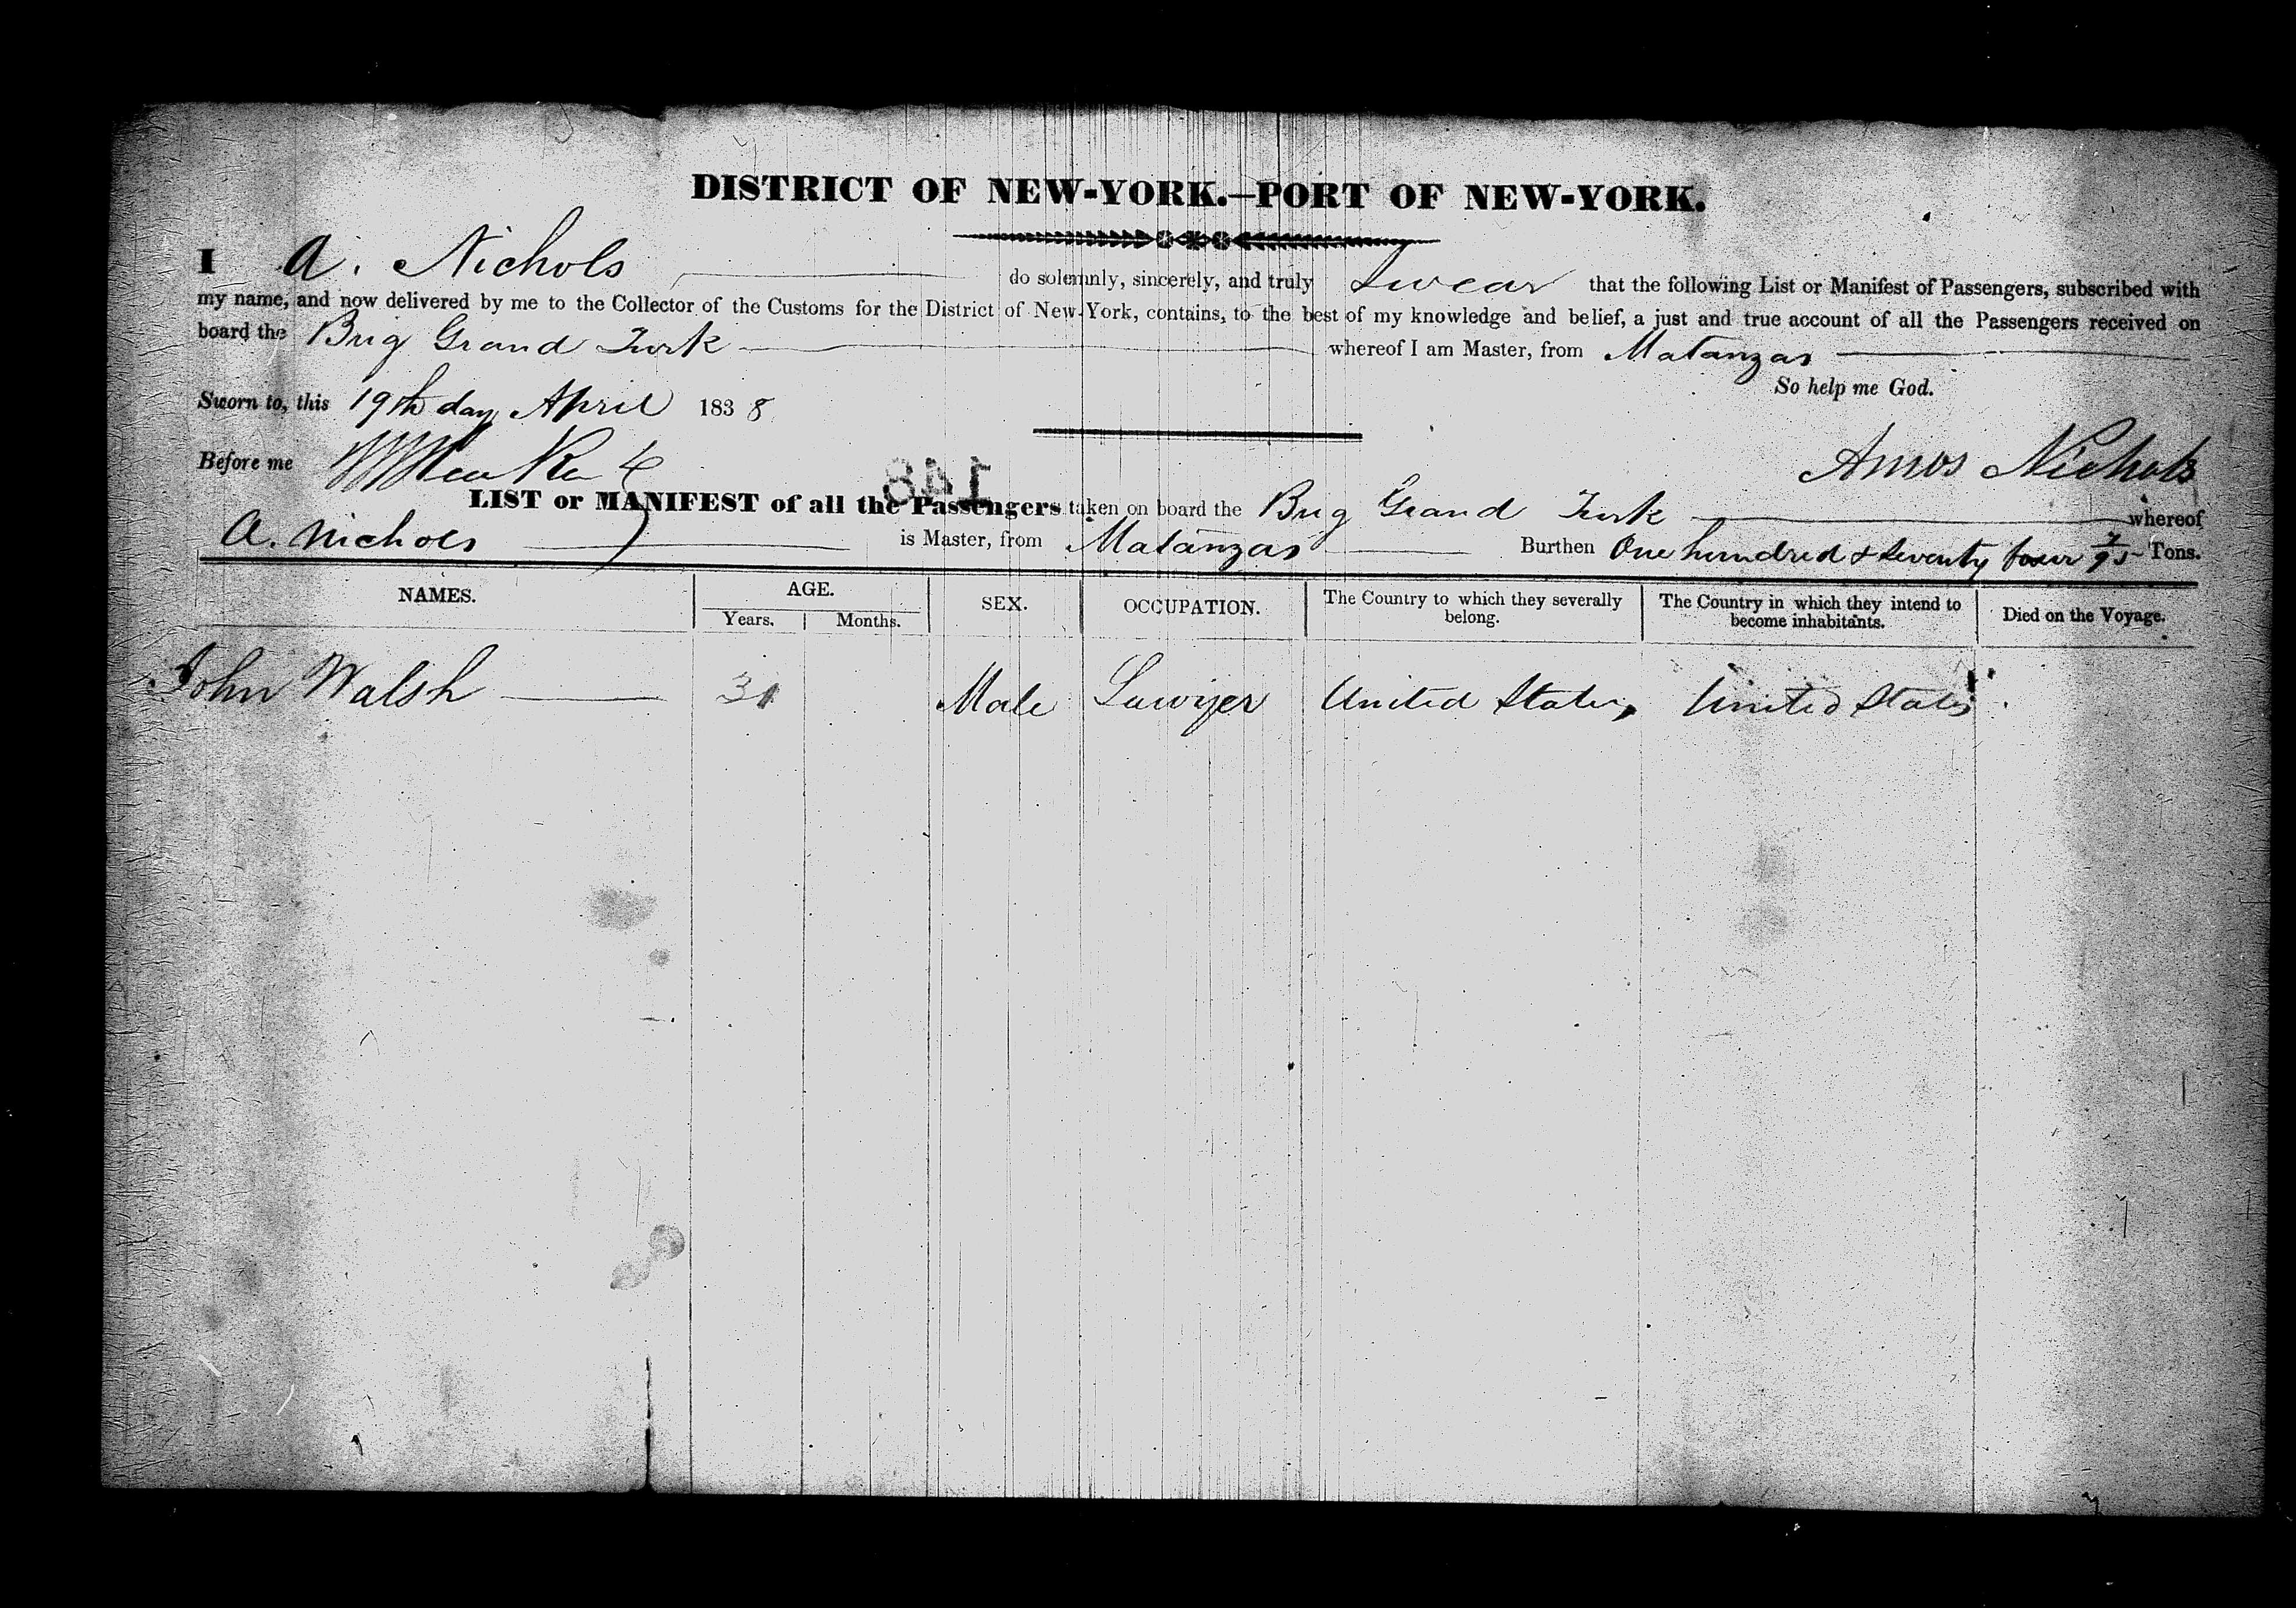 DISTRICT OF NEW-YORK.—PORT OF NEW-YORK.
I A. Nichols do solemnly, sincerely, and truly Swear that the following List or Manifest of Passengers, subscribed with
my name, and now delivered by me to the Collector of the Customs for the District of New-York, contains, to the best of my knowledge and belief, a just and true account of all the Passengers received on
board the Brig Grand Turk whereof I am Master, from Matanzas
So help me God.
Sworn to, this 19th day April 1838
Before me
Amos Nichols
148
LIST or MANIFEST of all the Passengers taken on board the Brig Grand Turk whereof
A. Nichols is Master, from Matanzas Burthen One hundred & seventy four 7/95 Tons.
NAMES. AGE. SEX. OCCUPATION. The Country to which they severally belong. The Country in which they intend to become inhabitants. Died on the Voyage.
Years. Months.
John Walsh 31 Male Lawyer United States United States